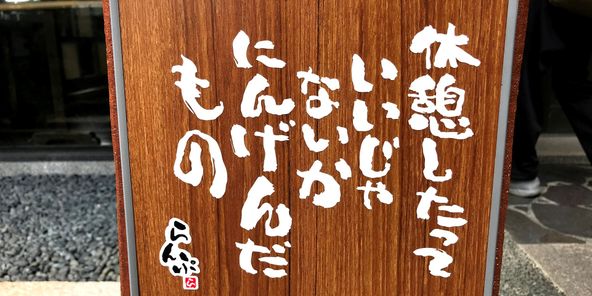 休憩したって
いいじゃ
ないか
にんげんだ
もの
らんぷ